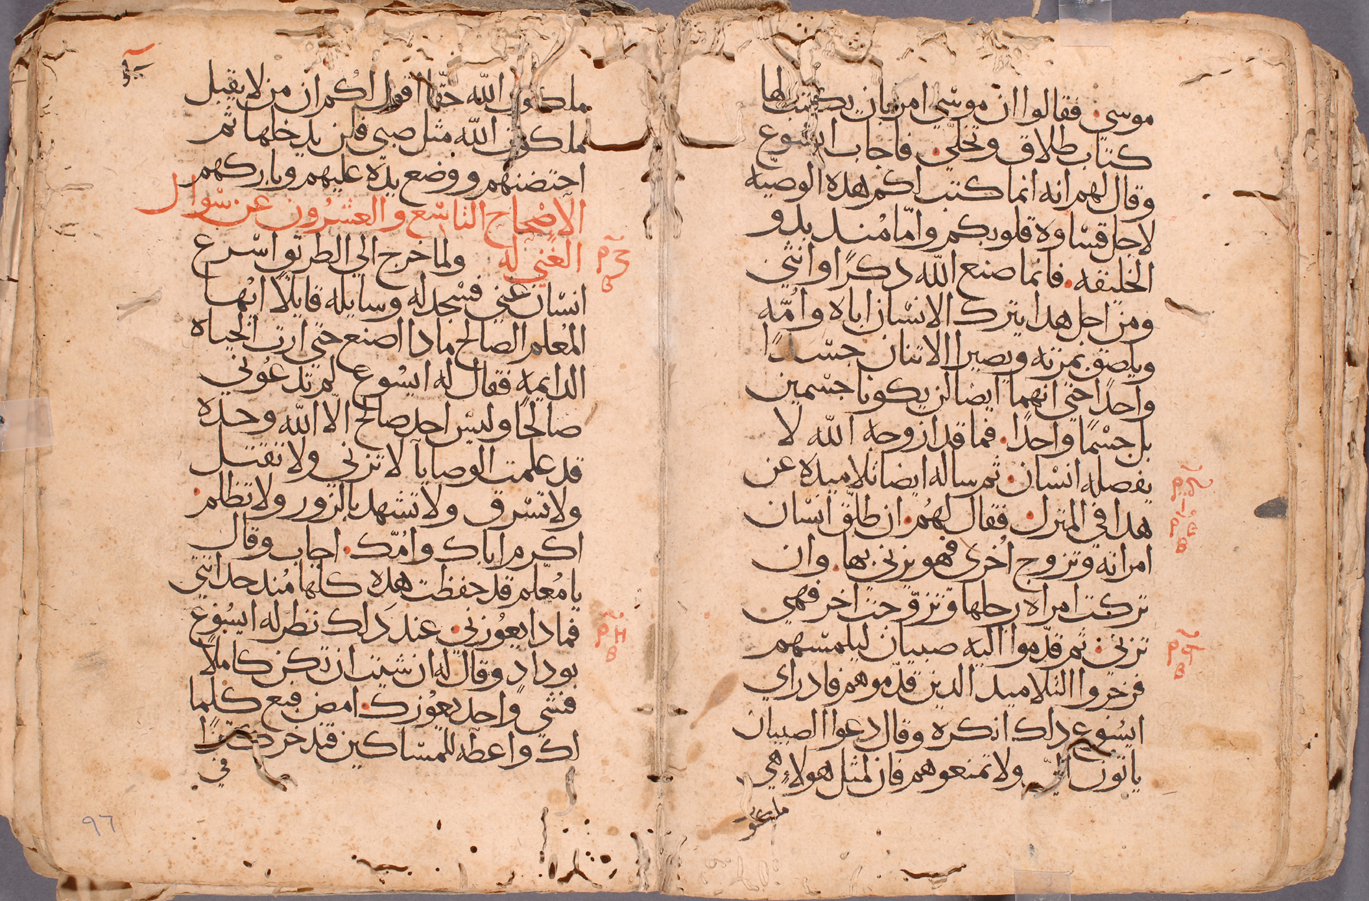 موسي. فقالوا ان موسي امر بان يكتب لها
كتاب طلاق وتخلي. فاجاب ايسوع
وقال لهم انه انما كتب لكم هده الوصيه
لاجل قساوه قلوبكم واما مند بدو
الخليقه. فانما صنع الله دكرًا وانثي
ومن اجل هدا يترك الانسان اباه وامه
ويلصق بمرته ويصير الاتنان جسدًا
واحدًا حتي انهما ايضا لن يكونا جسمين
بل جسمًا واحدًا. فما قد ازوجه الله لا
يفصله انسان. تم ساله ايضا تلاميده عن
هدا في المنزل. فقال لهم. ان طلق انسان
امراته وتزوج اخري فهو يزني بها. وان
تركت امراه رجلها وتزوجت اخر فهي
تزني. تم قدموا اليه صبيان ليلمسهم
فزجروا التلاميد الدين قدموهم فاد راي
ايسوع دلك انكره وقال دعوا الصبيان
ياتون الي ولا تمنعوهم فان لمثل هولاء هي
ملكو
ملكوت الله حقًا اقول لكم ان من لا يقبل
ملكوت الله مثل صبي فلن يدخلها تم
احتضنهم ووضع يده عليهم وباركهم
الاصحاح التاسع والعشرون عن سوال
الغني له ولما خرج الي الطريق اسرع
انسان غني فسجد له وسايله قايلًا ايها
المعلم الصالح مادا اصنع حتي ارت الحياه
الدايمه فقال له ايسوع لم تدعوني
صالحًا وليس احد صالح الا الله وحده
قد علمت الوصايا لا تزني ولا تقتل
ولا تسرق ولا تشهد بالزور ولا تظلم.
اكرم اباك وامك. اجاب وقال
يا معلم قد حفظت هده كلها مند حداتتي
فمادا يعوزني. عند دلك نظر له ايسوع
بوداد وقال له ان شيت ان تكن كاملًا
فشي واحد يعوزك. امض فبع كلما
لك واعطه للمساكين
في
٩٦